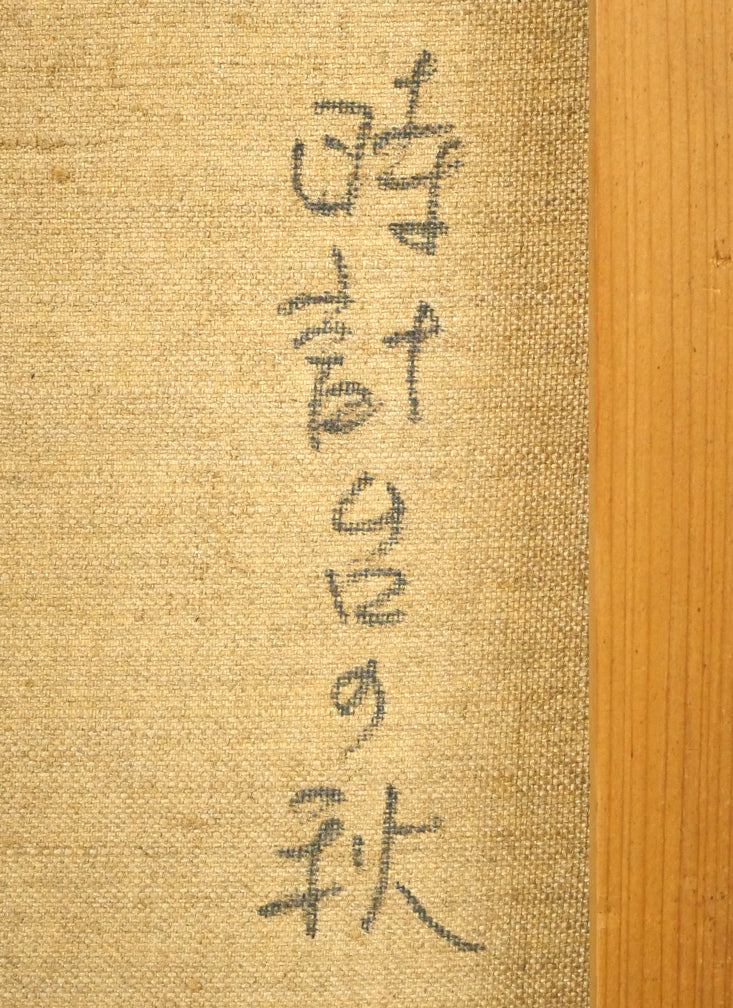 時計台の秋